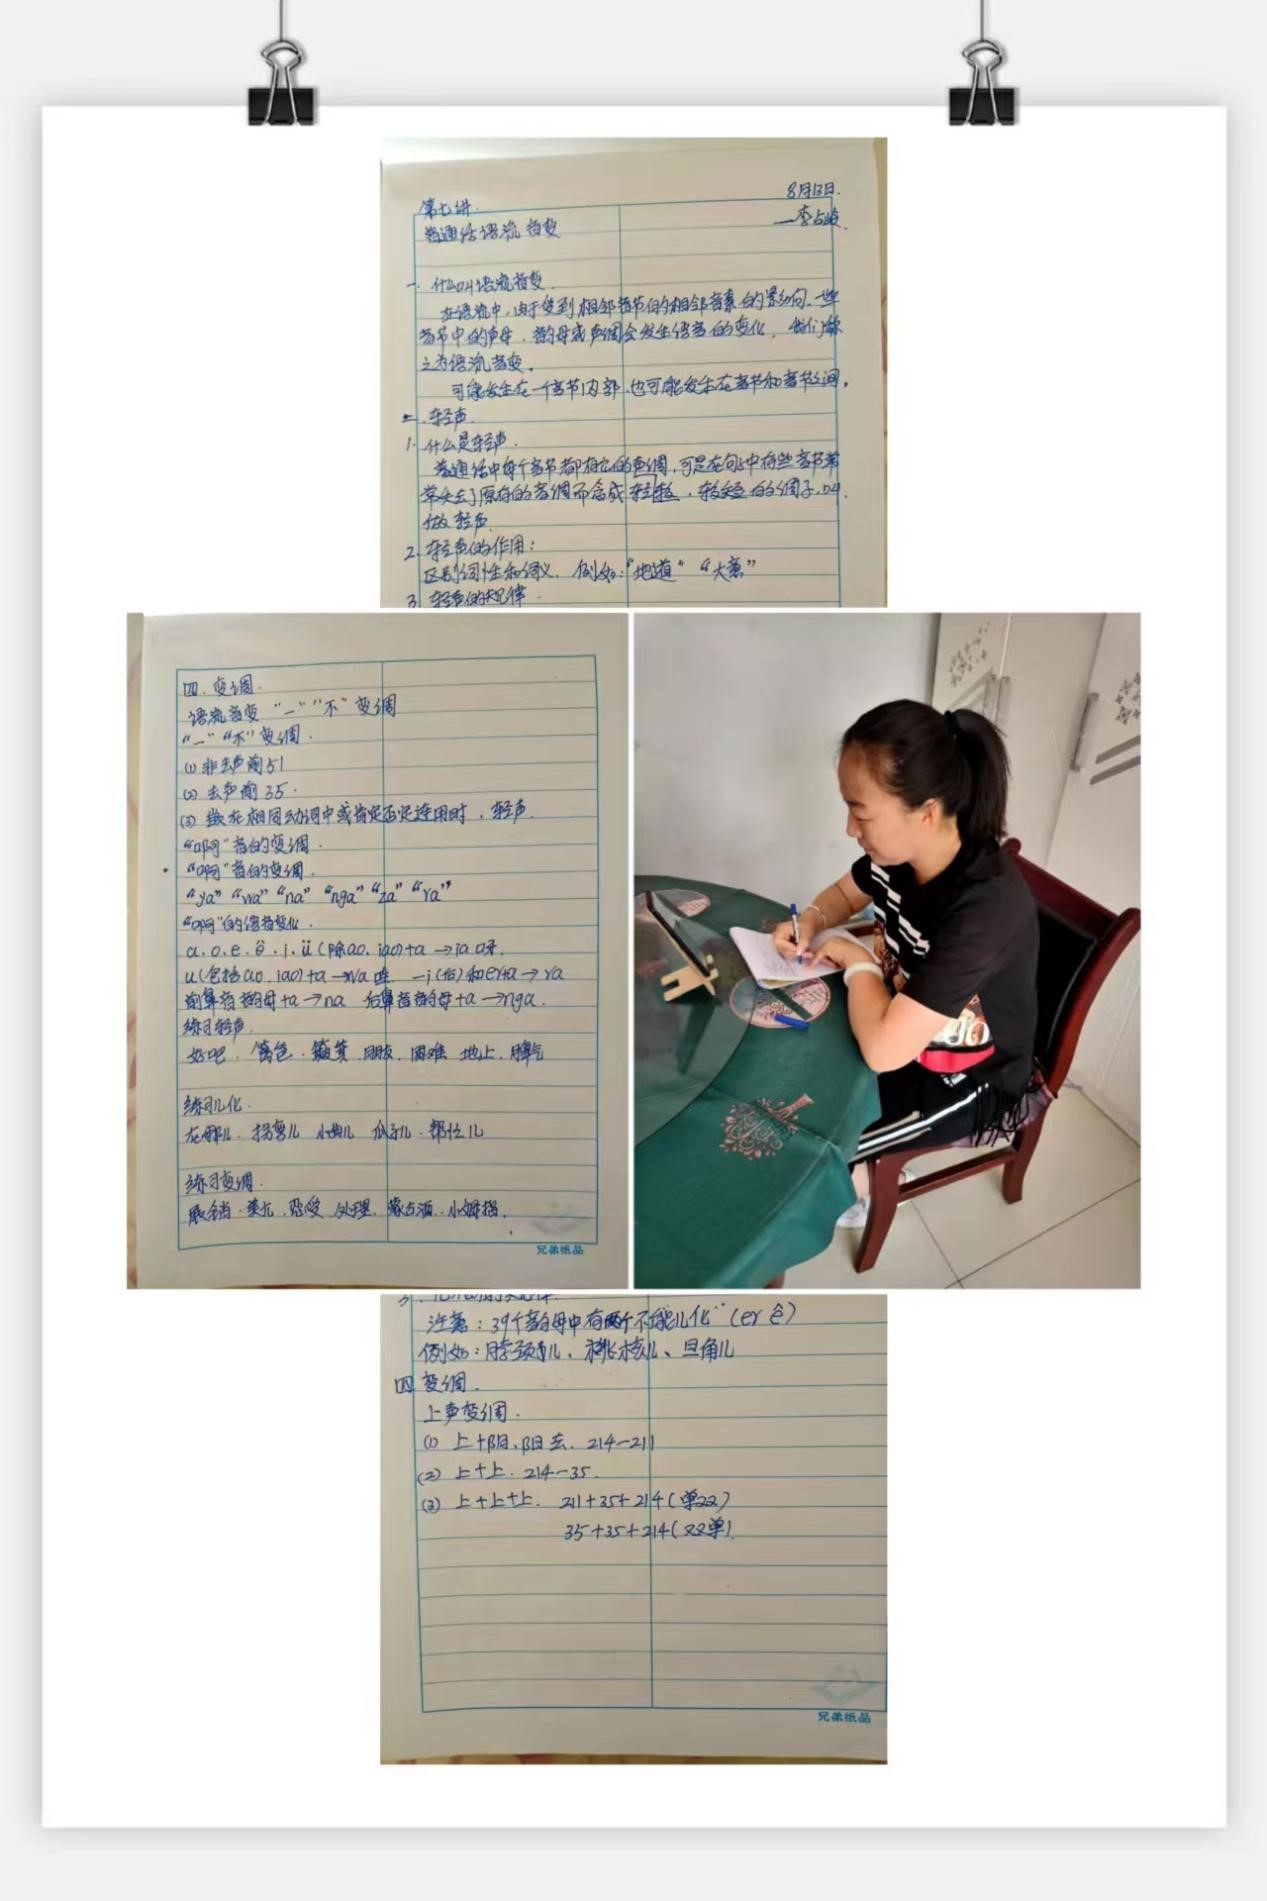 8月13日.
第七讲.
普通话语流音变
一李占
一. 什么叫语流音变.
在语流中,由于受到相邻音节的相邻音素的影响,一些
音节中的声母,韵母或声调会发生语音的变化,我们称
之为语流音变.
可能发生在一个音节内部,也可能发生在音节和音节之间.
二. 轻声.
1. 什么是轻声.
普通话中每个音节都有它的声调,可是在句子中有些音节常
常失去了原有的音调而念成轻,较短的调子,叫
做轻声.
2. 轻声的作用:
区别词性和词义. 例如:“地道”“大意”
3. 轻声的规律.
四. 变调.
语流音变 “一”“不”变调
“一”“不”变调.
(1) 非去声前51
(2) 去声前35.
(3) 嵌在相同动词中或肯定否定连用时,轻声.
“啊”音的变调.
“啊”音的变调.
“ya”“wa”“na”“nga”“za”“ra”
“啊”的语音变化.
a.o.e.ê.i.ü(除ao.iao)+a→ia呀.
u(包括ao.iao)+a→wa哇. —i(后)和er+a→ra
前鼻音韵母+a→na 后鼻音韵母+a→nga.
练习轻声.
好吧. 簸箕. 朋友. 困难 地上. 脾气
练习儿化.
在哪儿. 拐弯儿 小曲儿 瓜子儿. 帮忙儿
练习变调.
取销. 美尤. 忍受 处理. 蒙古酒. 小姆指.
兄弟纸品
注意:39个韵母中有两个不能“儿化”(er ê)
例如:脖颈儿、桃核儿、旦角儿
四 变调.
上声变调.
(1) 上+阴、阳去. 214—211
(2) 上+上. 214—35.
(3) 上+上+上. 211+35+214(单双)
35+35+214(双单).
兄弟纸品